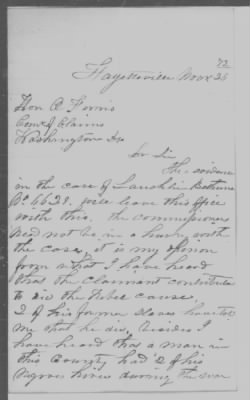 72
Fayetteville Nov 26
Hon O Ferris
Com of Claims
Washington
Dr Sir
The evidence
in the case of Lauchlin Bethune
No. 6639. will leave this office
with this. the commissioners
need not be in a hurry with
the case, it is my opinion
from what I have heard
that the claimant contributed
to aid the Rebel cause.
2 of his former slaves have told
me that he did, besides I
have heard that a man in
this County had 2 of his
negroes hired during the war